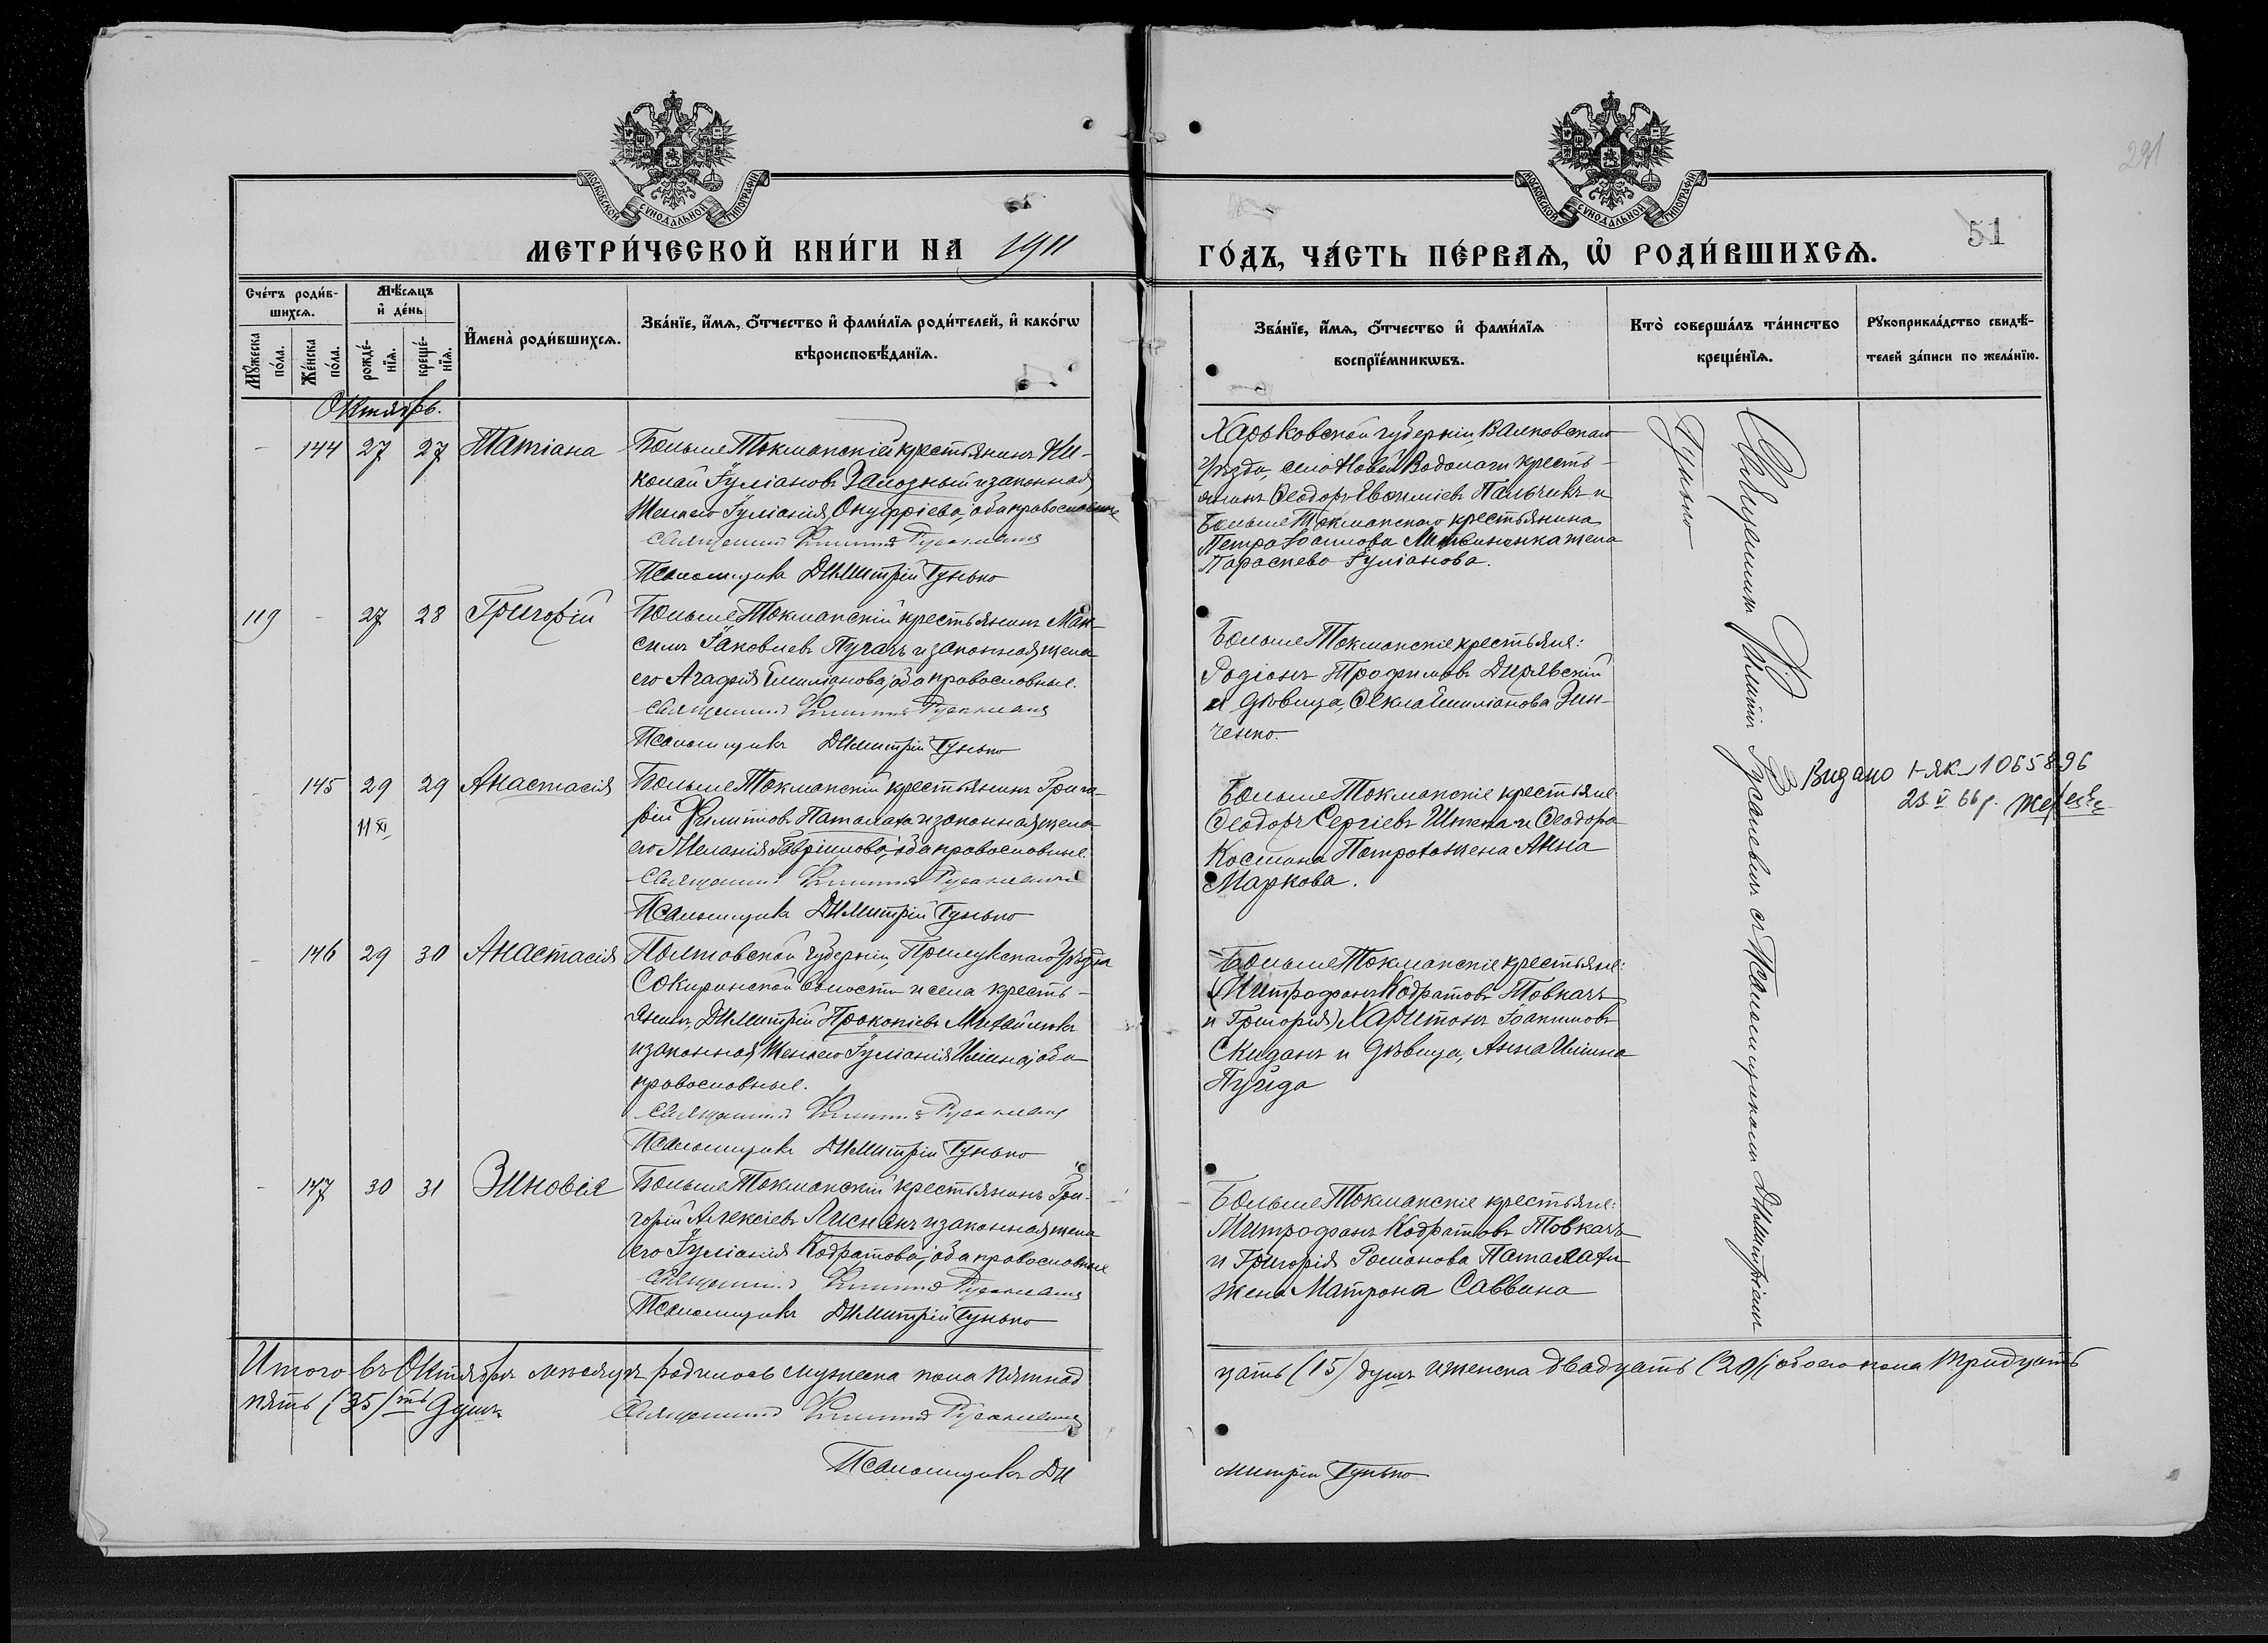 291
МОСКОВСКОЙ СУНОДАЛЬНОЙ ТИПОГРАФИИ
МОСКОВСКОЙ СУНОДАЛЬНОЙ ТИПОГРАФИИ
51
МЕТРИ́ЧЕСКОЙ КНИ́ГИ НА 1911
ГО́ДЪ, ЧА́СТЬ ПЕ́РВАѦ, Ѡ҆ РОДИ́ВШИХСѦ.
Сче́тъ роди́в-
шихсѧ.
Мꙋ́жеска по́ла.
Же́нска по́ла.
Мѣ́сѧцъ
и҆ де́нь
рожде́-
нїѧ.
креще́-
нїѧ.
И҆мена̀ роди́вшихсѧ.
Зва́нїе, и҆́мѧ, ѻ҆́тчество и҆ фами́лїѧ роди́телей, и҆ како́гѡ
вѣроисповѣ́данїѧ.
Зва́нїе, и҆́мѧ, ѻ҆́тчество и҆ фами́лїѧ
воспрїе́мникѡвъ.
Кто̀ соверша́лъ та́инство
креще́нїѧ.
Рꙋкоприкла́дство свидѣ́-
телей за́писи по жела́нїю.
Октябрь.
- 144 27 27 Татіана
БольшеТокмакскій крестьянинъ Ни-
колай Іуліановъ Залозный и законная
жена его Іуліанія Онуфріева, оба православные
Священникъ Филиппъ Русаневичъ
Псаломщикъ Димитрій Гунько
Харьковской губерніи, Валковскаго
уѣзда, села Новой Водолаги кресть-
янинъ Ѳеодоръ Евѳиміевъ Пальчикъ и
БольшеТокмакскаго крестьянина
Петра Іоаннова жена
Параскева Іуліанова.
119 - 27 28 Григорій
БольшеТокмакскій крестьянинъ Мак-
симъ Іаковлевъ Пугачъ и законная жена
его Агафія Емиліанова, оба православные.
Священникъ Филиппъ Русаневичъ
Псаломщикъ Димитрій Гунько
БольшеТокмакскіе крестьяне:
Родіонъ Трофимовъ Дирявскій
и дѣвица, Ѳекла Емиліанова Зин-
ченко.
- 145 29 29 Анастасія
11 XI
БольшеТокмакскій крестьянинъ Григо-
рій Филипповъ Паталаха и законная жена
его Меланія Гавріилова, оба православные.
Священникъ Филиппъ Русаневичъ
Псаломщикъ Димитрій Гунько
БольшеТокмакскіе крестьяне
Ѳеодоръ Сергіевъ Штепа и Ѳеодора
Космина Петрова жена Анна
Маркова.
Видано І-ЯК №1065896
23. V 66 р.
- 146 29 30 Анастасія
Полтавской губерніи, Прилукскаго уѣзда
Сокиринской волости и села кресть-
янинъ, Димитрій Прокопіевъ Михайлюкъ
и законная жена его Іуліанія Ильина, оба
православные.
Священникъ Филиппъ Русаневичъ
Псаломщикъ Димитрій Гунько
БольшеТокмакскіе крестьяне:
(Митрофанъ Кодратовъ Товкачъ
и Григорія) Харитонъ Іоакимовъ
Скиданъ и дѣвица, Анна Ильина
- 147 30 31 Зиновія
БольшеТокмакскій крестьянинъ Гри-
горій Алексіевъ Лиснякъ и законная жена
его Іуліанія Кодратова, оба православные
Священникъ Филиппъ Русаневичъ
Псаломщикъ Димитрій Гунько
БольшеТокмакскіе крестьяне:
Митрофанъ Кодратовъ Товкачъ
и Григорія Романова Паталахи
жена Матрона Саввина
Священникъ Филиппъ Русаневичъ съ Псаломщикомъ Димитріемъ
Гунько
Итого въ Октябрѣ мѣсяцѣ родилось мужеска пола пятнад
цать (15) душъ и женска двадцать (20), обоего пола тридцать
пять (35)ть душъ.
Священникъ Филиппъ Русаневичъ
Псаломщикъ Ди
митрій Гунько